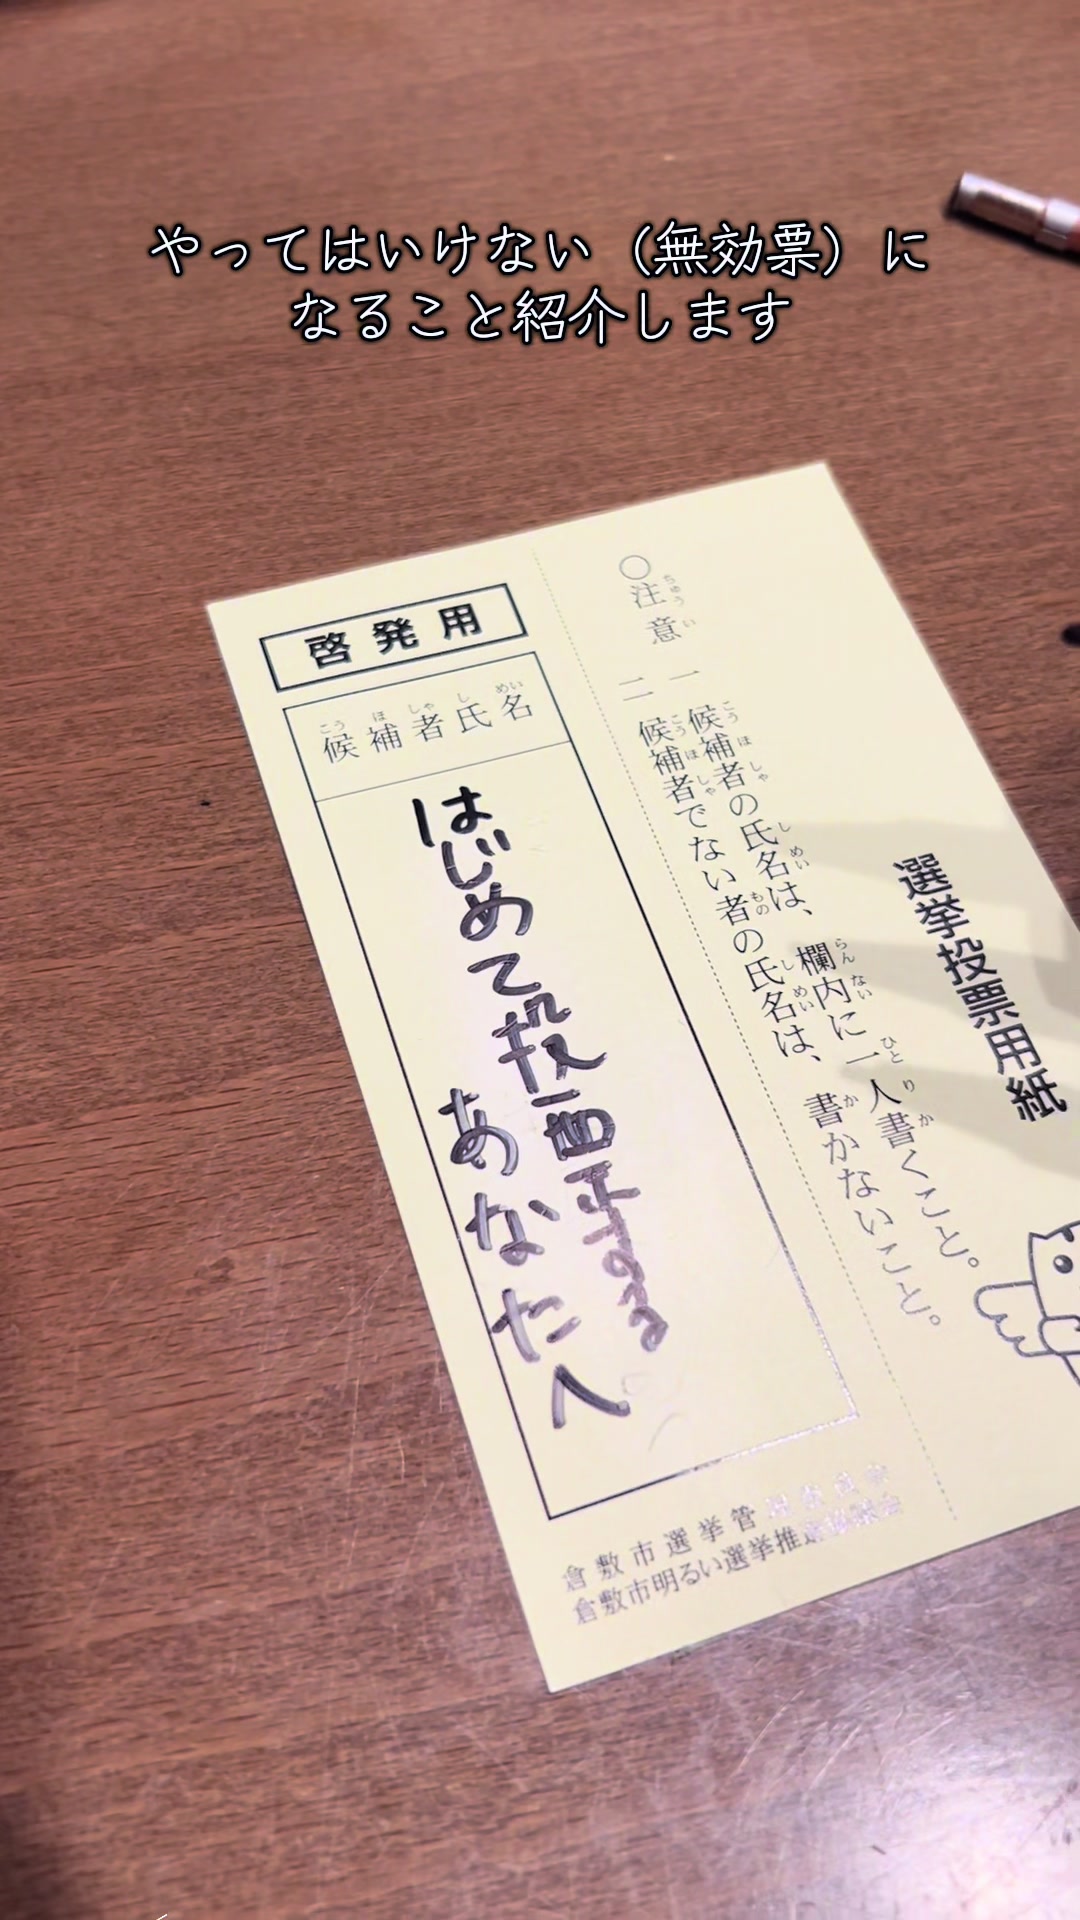 やってはいけない（無効票）に
なること紹介します
選挙投票用紙
○注意
一 候補者の氏名は、欄内に一人書くこと。
二 候補者でない者の氏名は、書かないこと。
啓発用
候補者氏名
はじめて投票する
あなたへ
倉敷市選挙管
倉敷市明るい選挙推進協議会